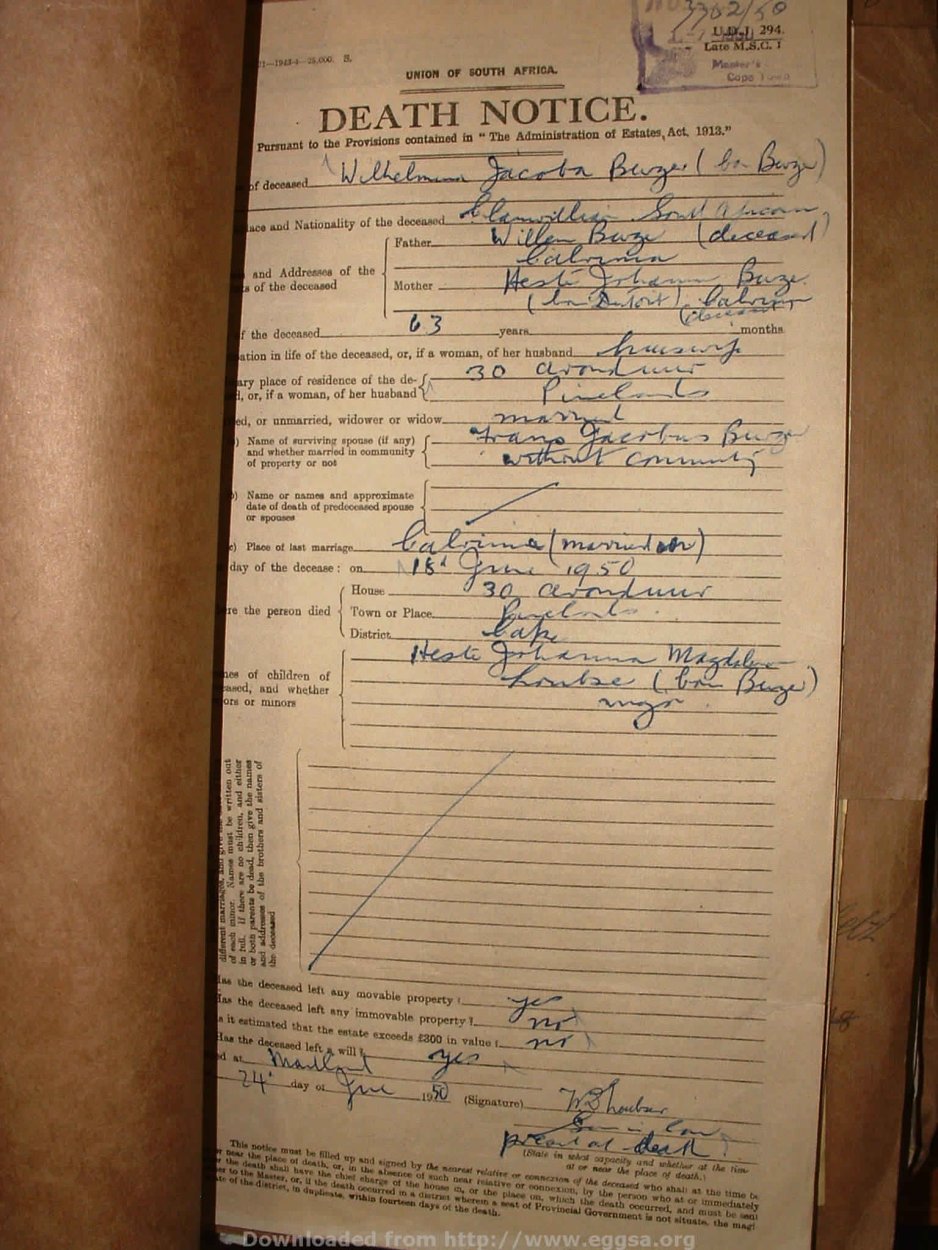 3302/50
U.D.J. 294.
Late M.S.C. 1
Master's
Cape Town
1—1943-4—25,000. S.
UNION OF SOUTH AFRICA.
DEATH NOTICE.
Pursuant to the Provisions contained in "The Administration of Estates, Act, 1913."
of deceased Wilhelmina Jacoba Burger (born Burger)
lace and Nationality of the deceased Clanwilliam South African
Father Willem Burger (deceased)
Calvinia
and Addresses of the
s of the deceased
Mother Hester Johanna Burger
(born Dutoit) Calvinia
(deceased)
f the deceased 63 years months
ation in life of the deceased, or, if a woman, of her husband housewife
ary place of residence of the de-
d, or, if a woman, of her husband
30
Pinelands
ed, or unmarried, widower or widow married
) Name of surviving spouse (if any)
and whether married in community
of property or not
Frans Jacobus Burger
without community
) Name or names and approximate
date of death of predeceased spouse
or spouses
c) Place of last marriage Calvinia (married)
day of the decease: on 18 June 1950
House 30
re the person died Town or Place Pinelands
District Cape
Hester Johanna Magdalena
mes of children of
eased, and whether
ors or minors
Loubser (born Burger)
major
different marriages, and give the
of each minor. Names must be written out
in full. If there are no children, and either
or both parents be dead, then give the names
and addresses of the brothers and sisters of
the deceased
Has the deceased left any movable property? yes
Has the deceased left any immovable property? no
s it estimated that the estate exceeds £300 in value? no
Has the deceased left a will? yes
d at Maitland
24 day of June 1950 (Signature) Loubser
Son in law
present at death
(State in what capacity and whether at the time
at or near the place of death.)
This notice must be filled up and signed by the nearest relative or connexion of the deceased who shall at the time be
or near the place of death, or, in the absence of such near relative or connexion, by the person who at or immediately
the death shall have the chief charge of the house in, or the place on, which the death occurred, and must be sent
er to the Master, or, if the death occurred in a district wherein a seat of Provincial Government is not situate, the magi
te of the district, in duplicate, within fourteen days of the death.
Downloaded from http://www.eggsa.org